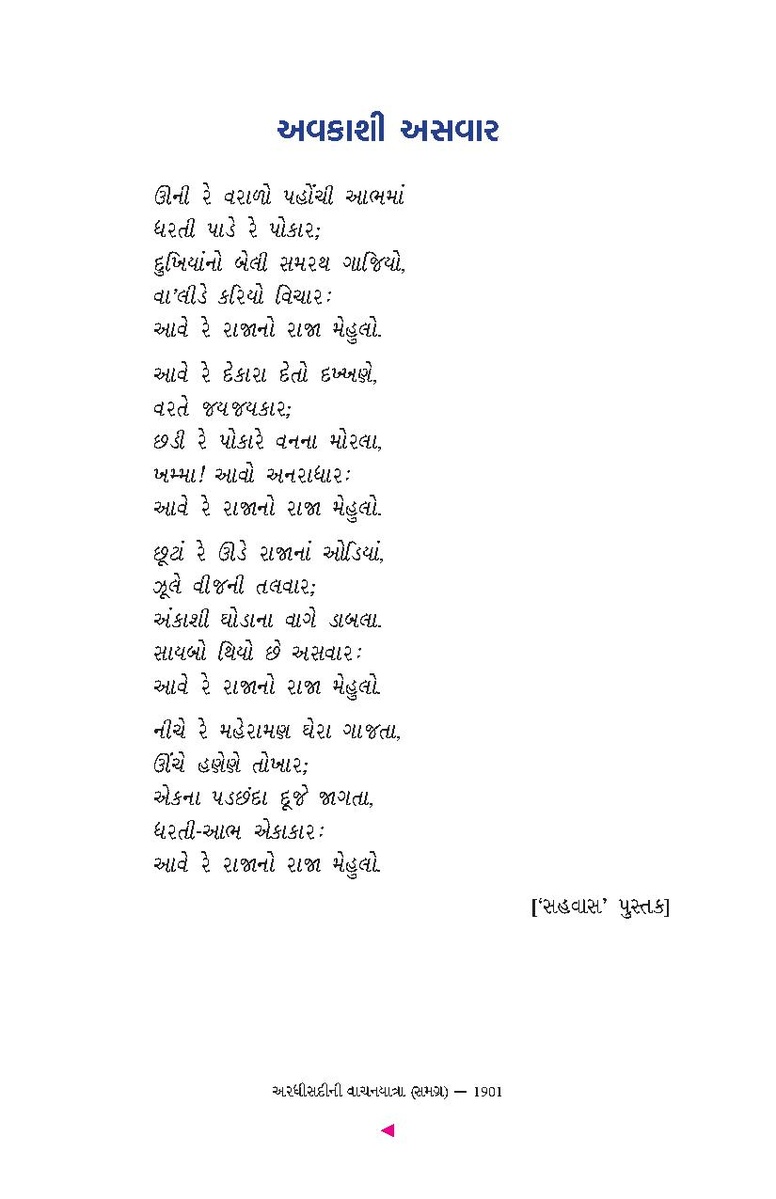 અવકાશી અસવાર
ઊની રે વરાળો પહોંચી આભમાં
ધરતી પાડે રે પોકાર;
દુખિયાંનો બેલી સમરથ ગાજિયો,
વા’લીડે કરિયો વિચાર:
આવે રે રાજાનો રાજા મેહુલો.
આવે રે દેકારા દેતો દખ્ખણે,
વરતે જયજયકાર;
છડી રે પોકારે વનના મોરલા,
ખમ્મા! આવો અનરાધાર:
આવે રે રાજાનો રાજા મેહુલો.
છૂટાં રે ઊડે રાજાનાં ઓડિયાં,
ઝૂલે વીજની તલવાર;
અંકાશી ઘોડાના વાગે ડાબલા.
સાયબો થિયો છે અસવાર:
આવે રે રાજાનો રાજા મેહુલો.
નીચે રે મહેરામણ ઘેરા ગાજતા,
ઊંચે હણેણે તોખાર;
એકના પડછંદા દૂજે જાગતા,
ધરતી-આભ એકાકાર:
આવે રે રાજાનો રાજા મેહુલો.
[‘સહવાસ’ પુસ્તક]
અરધીસદીની વાચનયાત્રા (સમગ્ર) — 1901